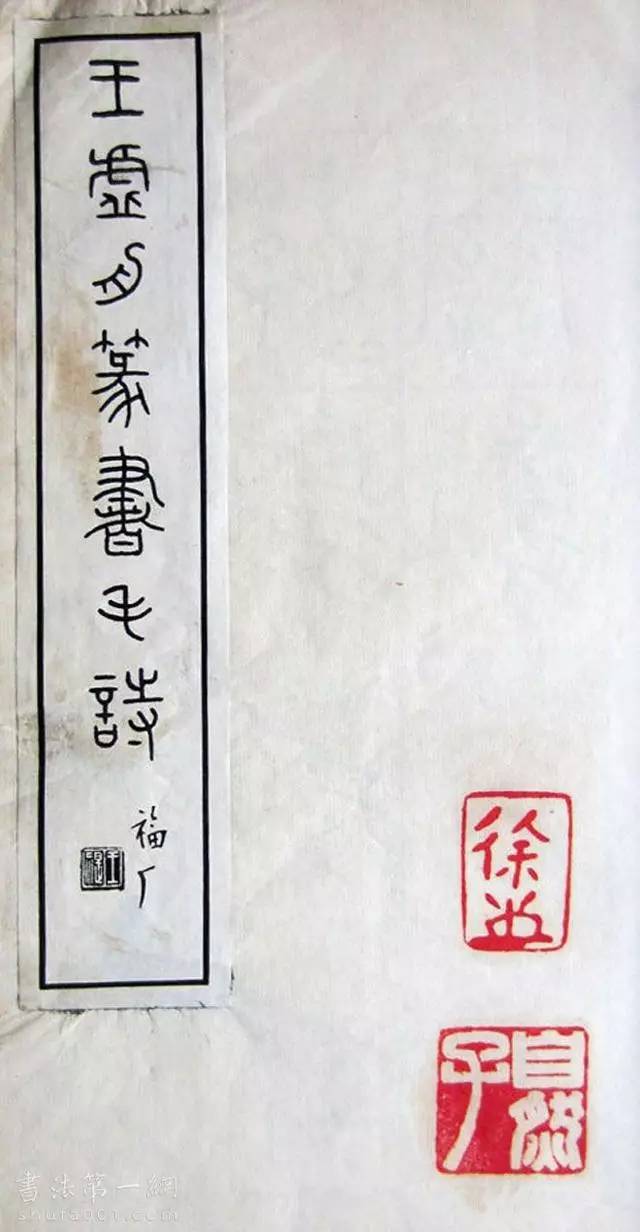 王虛舟篆書毛詩
福厂
王禔
徐
自然子
書法第一網
shufa001.com